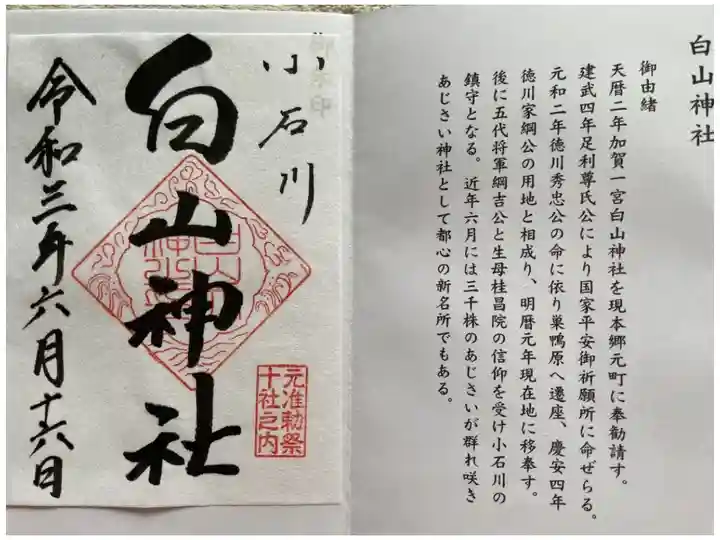 白山神社
御由緒
天暦二年加賀一宮白山神社を現本郷元町に奉勧請す。
建武四年足利尊氏公により国家平安御祈願所に命ぜらる。
元和二年徳川秀忠公の命に依り巣鴨原へ遷座、慶安四年
徳川家綱公の用地と相成り、明暦元年現在地に移奉す。
後に五代将軍綱吉公と生母桂昌院の信仰を受け小石川の
鎮守となる。近年六月には三千株のあじさいが群れ咲き
あじさい神社として都心の新名所でもある。
小石川
白山神社
元准勅祭
十社之内
令和三年六月十六日